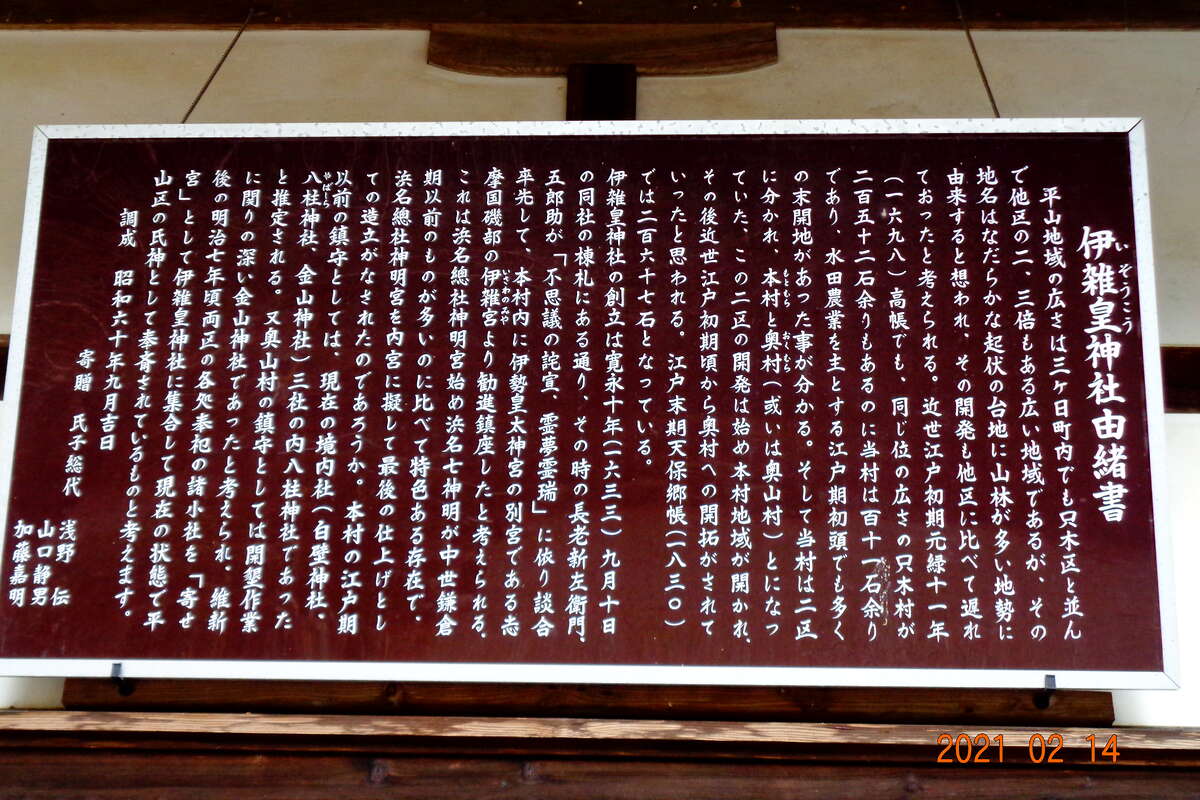 伊雑皇神社由緒書
いぞうこう
平山地域の広さは三ヶ日町内でも只木区と並ん
で他区の二、三倍もある広い地域であるが、その
地名はなだらかな起伏の台地に山林が多い地勢に
由来すると想われ、その開発も他区に比べて遅れ
ておったと考えられる。近世江戸初期元緑十一年
(一六九八)高帳でも、同じ位の広さの只木村が
二百五十二石余りもあるのに当村は百十一石余り
であり、水田農業を主とする江戸期初頭でも多く
の末開地があった事が分かる。そして当村は二区
に分かれ、本村と奥村(或いは奥山村)とになっ
もとむら おくむら
ていた、この二区の開発は始め本村地域が開かれ、
その後近世江戸初期頃から奥村への開拓がされて
いったと思われる。江戸末期天保郷帳(一八三〇)
では二百六十七石となっている。
伊雑皇神社の創立は寛永十年(一六三三)九月十日
の同社の棟札にある通り、その時の長老新左衛門、
五郎助が、「不思議の詫宣、霊夢霊瑞」に依り談合
卒先して、本村内に伊勢皇大神宮の別宮である志
摩国磯部の伊雑宮より勧進鎮座したと考えられる、
いさわのみや
これは浜名總社神明宮始め浜名七神明が中世鎌倉
期以前のものが多いのに比べて特色ある存在で、
浜名總社神明宮を内宮に擬して最後の仕上げとし
ての造立がなされたのであろうか。本村の江戸期
以前の鎮守としては、現在の境内社(白壁神社、
八柱神社、金山神社)三社の内八柱神社であった
やばしら
と推定される。又奥山村の鎮守としては開墾作業
に関りの深い金山神社であったと考えられ、維新
後の明治七年頃両区の各処奉祀の諸小社を「寄せ
宮」として伊雑皇神社に集合して現在の状態で平
山区の氏神として奉斎されているものと考えます。
調成 昭和六十年九月吉日
寄贈 氏子総代 浅野 伝
山口静男
加藤嘉明
2021 02 14